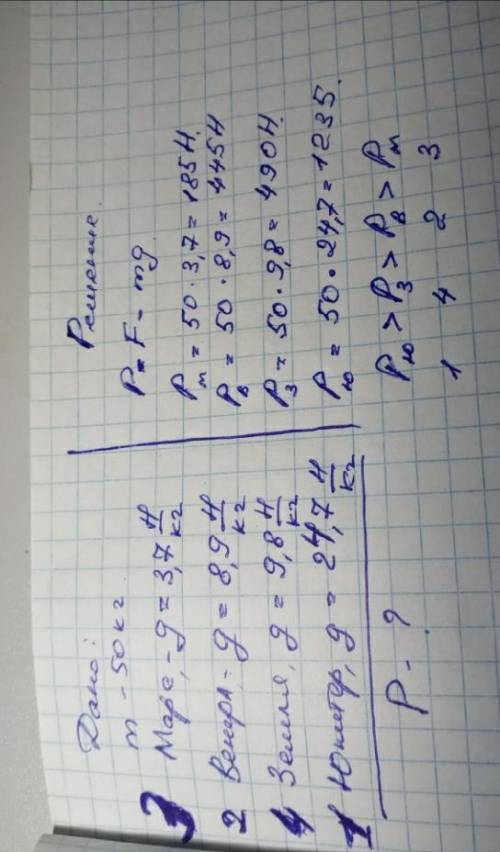 Дано:
m - 50 кг
3 Марс, - g = 3,7 Н/кг
2 Венера - g = 8,9 Н/кг
4 Земля, g = 9,8 Н/кг
1 Юпитер, g = 24,7 Н/кг
P - ?
Решение.
P = F = mg
Pм = 50 · 3,7 = 185 Н.
Pв = 50 · 8,9 = 445 Н
Pз = 50 · 9,8 = 490 Н.
Pю = 50 · 24,7 = 1235.
Pю > Pз > Pв > Pм
1 4 2 3